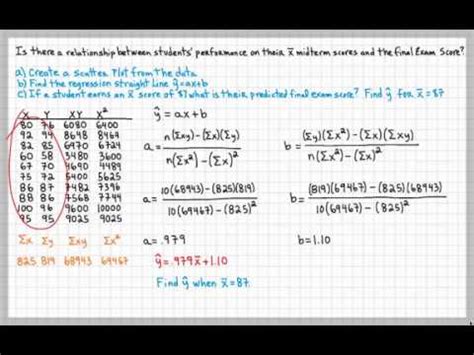 Is there a relationship between students' performance on their x̄ midterm scores and the final Exam Score?
a) Create a scatter plot from the data
b) Find the regression straight line ŷ=ax+b
c) If a student earns an x̄ score of 87 what is their predicted final exam score? Find ŷ for x̄=87
X Y XY X²
80 76 6080 6400
92 94 8648 8464
82 85 6970 6724
60 58 3480 3600
67 70 4690 4489
75 72 5400 5625
86 87 7482 7396
88 86 7568 7744
100 96 9600 10000
95 95 9025 9025
Σx Σy Σxy Σx²
825 819 68943 69467
ŷ = ax + b
a = n(Σxy) - (Σx)(Σy) / n(Σx²) - (Σx)²
b = (Σy)(Σx²) - (Σx)(Σxy) / n(Σx²) - (Σx)²
a = 10(68943) - (825)(819) / 10(69467) - (825)²
b = (819)(69467) - (825)(68943) / 10(69467) - (825)²
a = .979
b = 1.10
ŷ = .979x̄ + 1.10
Find ŷ when x̄ = 87.